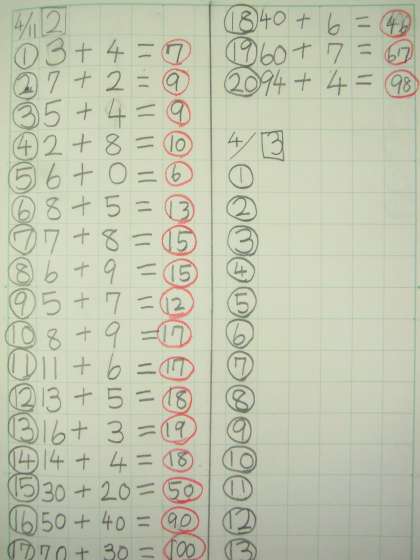 4/11 2
① 3 + 4 = 7
② 7 + 2 = 9
③ 5 + 4 = 9
④ 2 + 8 = 10
⑤ 6 + 0 = 6
⑥ 8 + 5 = 13
⑦ 7 + 8 = 15
⑧ 6 + 9 = 15
⑨ 5 + 7 = 12
⑩ 8 + 9 = 17
⑪ 11 + 6 = 17
⑫ 13 + 5 = 18
⑬ 16 + 3 = 19
⑭ 14 + 4 = 18
⑮ 30 + 20 = 50
⑯ 50 + 40 = 90
⑰ 70 + 30 = 100
⑱ 40 + 6 = 46
⑲ 60 + 7 = 67
⑳ 94 + 4 = 98
4/ 3
①
②
③
④
⑤
⑥
⑦
⑧
⑨
⑩
⑪
⑫
⑬